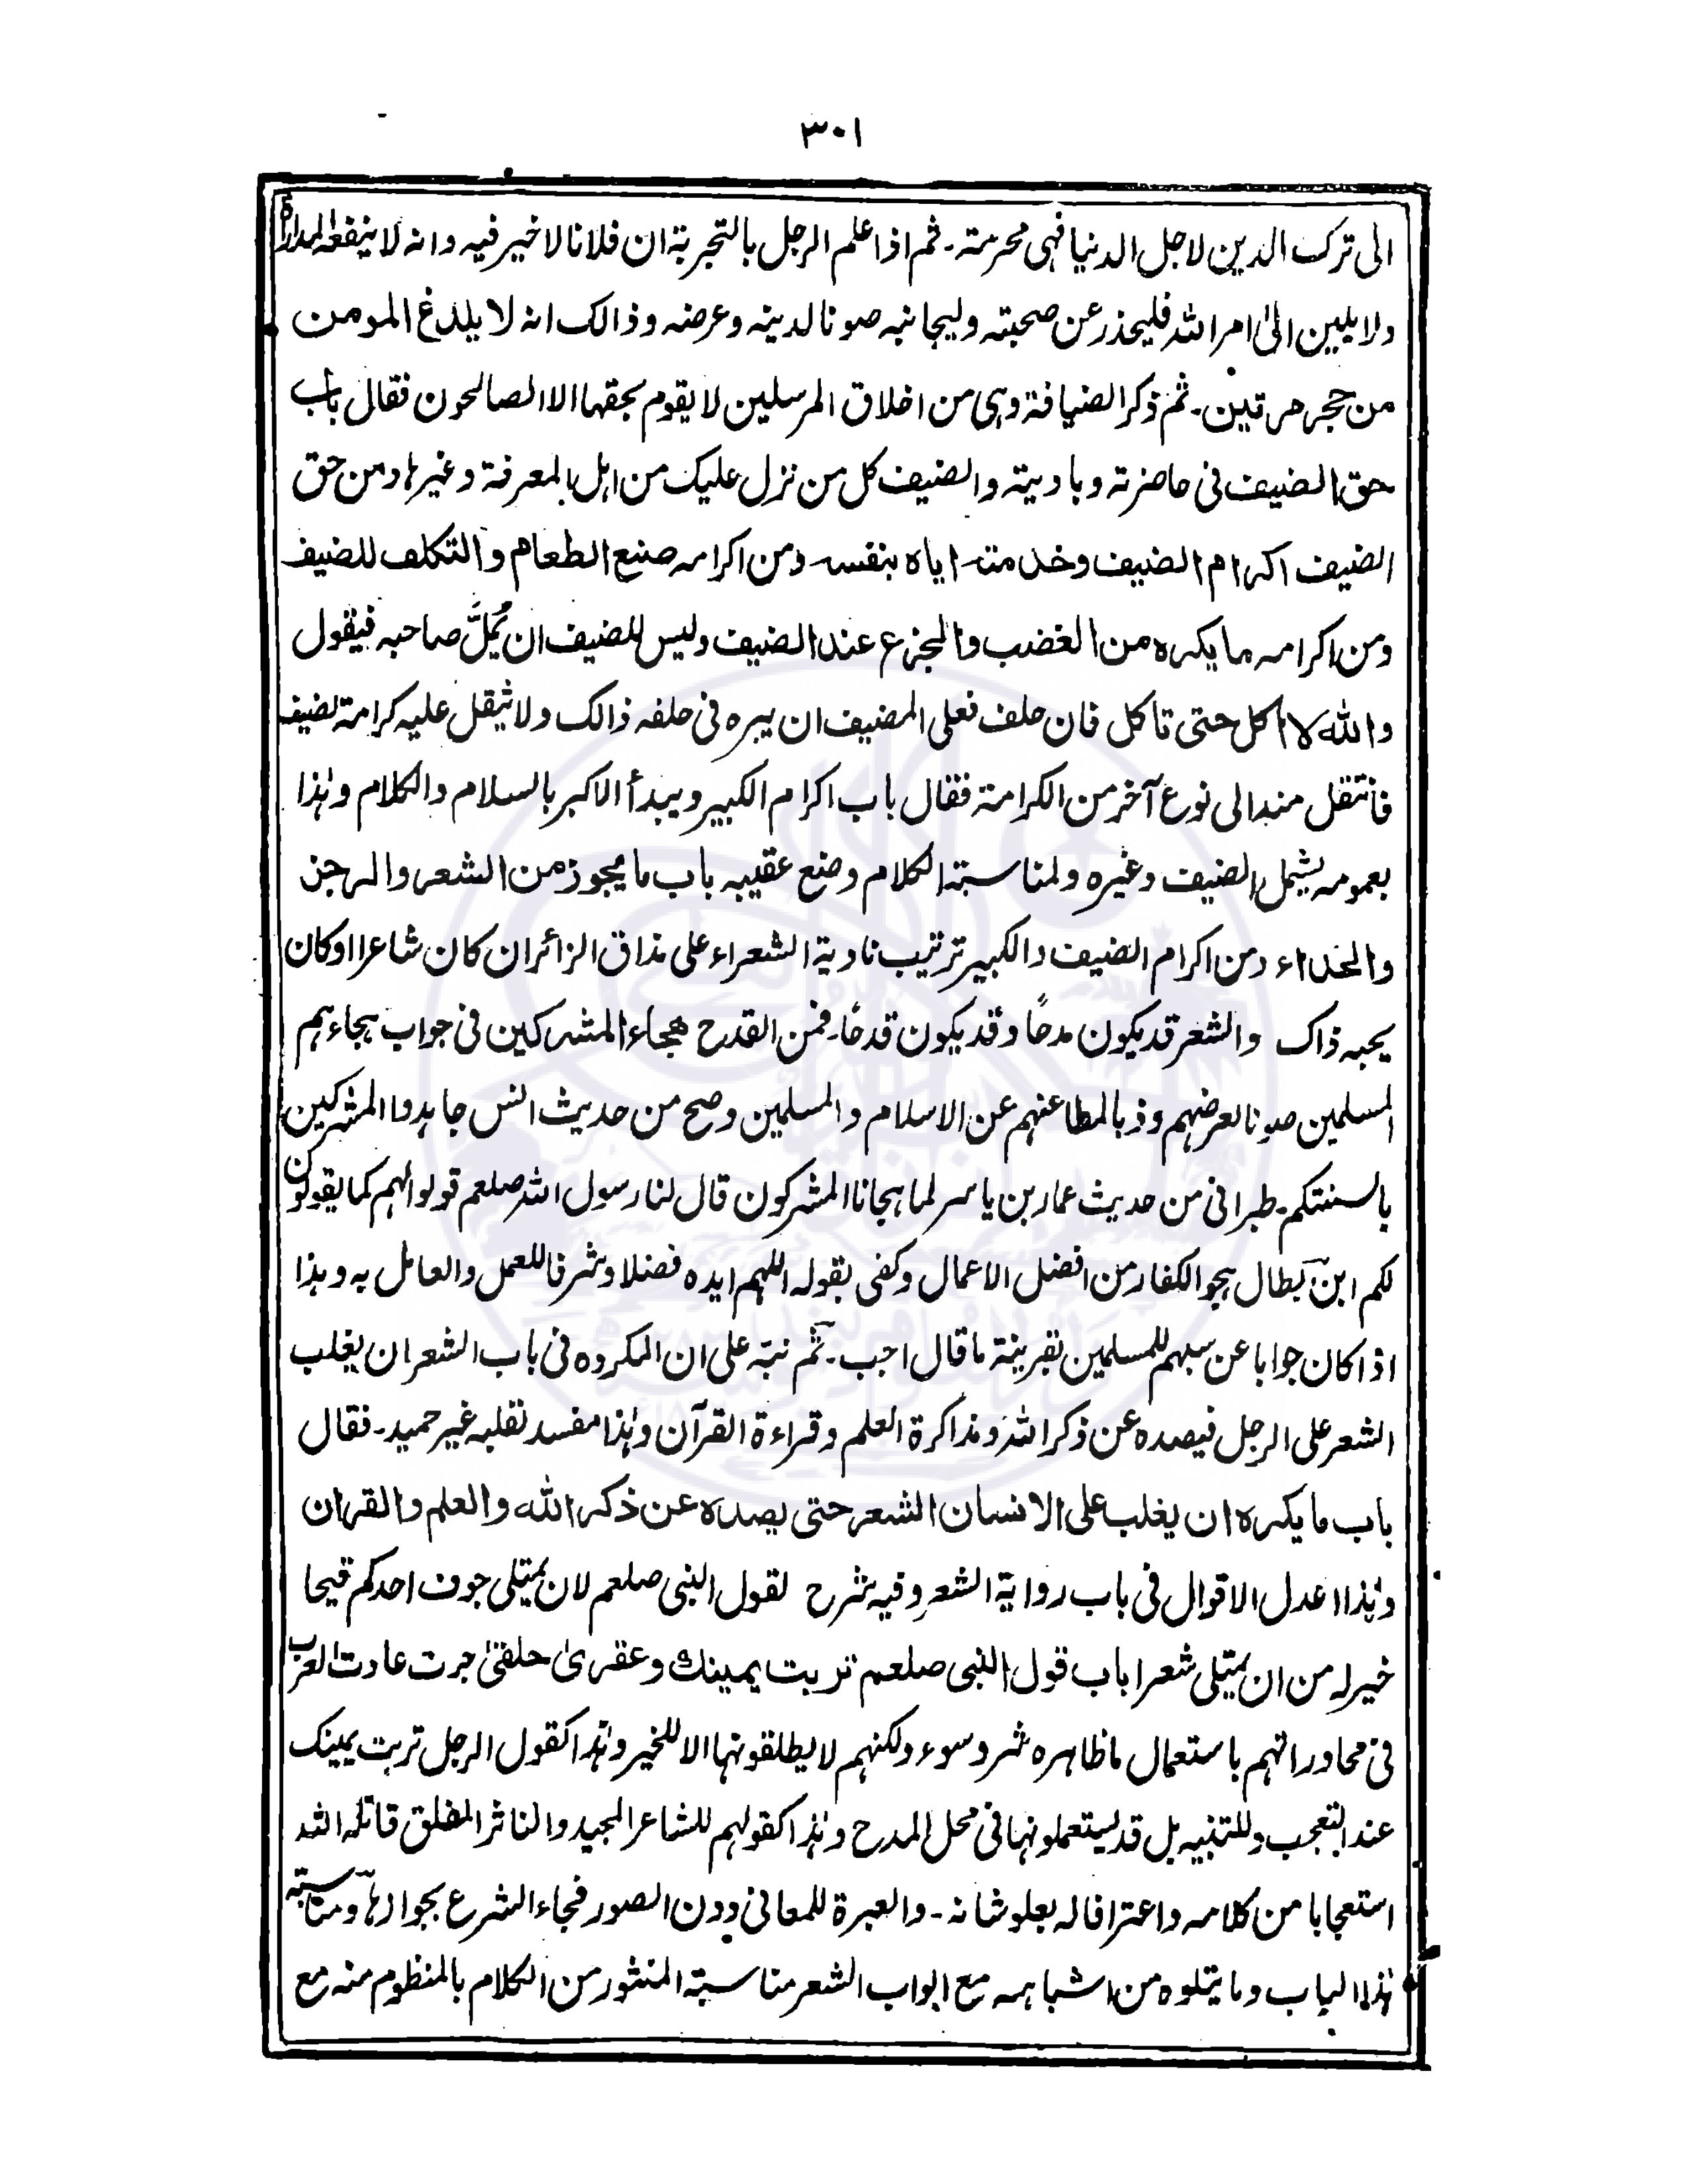 ٣٠١
الى ترك الدين لاجل الدنيا فهى محرمة۔ ثم اذا علم الرجل بالتجربة ان فلانا لا خير فيه وانه لا ينفعه المداراة
ولا يلين الىٰ امر الله فليحذر عن صحبته وليجانبه صونا لدينه وعرضه وذالك انه لا يلدغ المومن
من حجر مرتين۔ ثم ذكر الضيافة وهى من اخلاق المرسلين لا يقوم بحقها الا الصالحون فقال باب
حق الضيف فى حاضرته وباديته والضيف كل من نزل عليك من اهل المعرفة وغيرها ومن حق
الضيف اكرام الضيف وخدمته اياه بنفسه ومن اكرامه صنع الطعام والتكلف للضيف
ومن اكرامه ما يكره من الغضب والجزع عند الضيف وليس للضيف ان يُمِلَّ صاحبه فيقول
والله لا اكل حتى تاكل فان حلف فعلى المضيف ان يبره فى حلفه ذالك ولا يثقل عليه كرامة لضيف
فانتقل منه الى نوع آخر من الكرامة فقال باب اكرام الكبير ويبدأ الاكبر بالسلام والكلام وهٰذا
بعمومه يشمل الضيف وغيره ولمناسبة الكلام وضع عقيبه باب ما يجوز من الشعر والرجز
والحداء ومن اكرام الضيف والكبير ترتيب نادية الشعراء على مذاق الزائر ان كان شاعرا اوكان
يحبه ذاك والشعر قد يكون مدحًا وقد يكون قدحًا۔ فمن القدح هجاء المشركين فى جواب هجاءهم
المسلمين صونا لعرضهم وذبا لمطاعنهم عن الاسلام والمسلمين وصح من حديث انس جاهدوا المشركين
بالسنتكم۔ طبرانى من حديث عمار بن ياسر لما هجانا المشركون قال لنا رسول الله صلعم قولوا لهم كما يقولون
لكم ابن بطال هجو الكفار من افضل الاعمال وكفى بقوله اللهم ايده فضلا وشرفا للعمل والعامل به وهذا
اذا كان جوابا عن سبهم للمسلمين بقرينة ما قال اجب۔ ثم نبّه على ان المكروه فى باب الشعر ان يغلب
الشعر على الرجل فيصده عن ذكر الله ومذاكرة العلم وقراءة القرآن وهٰذا مفسد لقلبه غير حميد۔ فقال
باب ما يكره ان يغلب على الانسان الشعر حتى يصده عن ذكر الله والعلم والقران
وهٰذا اعدل الاقوال فى باب رواية الشعر وفيه شرح لقول النبى صلعم لان يمتلى جوف احدكم قيحا
خير له من ان يمتلى شعرا باب قول النبى صلعم تربت يمينك وعقرىٰ حلقىٰ جرت عادت العرب
فى محاوراتهم باستعمال ما ظاهره شر وسوء ولكنهم لا يطلقونها الا للخير وهٰذا كقول الرجل تربت يمينك
عند التعجب وللتنبيه بل قد يستعملونها فى محل المدح وهٰذا كقولهم للشاعر المجيد والناثر المفلق قاتله الله
استعجابا من كلامه واعترافا له بعلو شانه۔ والعبرة للمعانى دون الصور فجاء الشرع بجوازها ومناسبة
هٰذا الباب وما يتلوه من اشباهه مع ابواب الشعر مناسبة المنثور من الكلام بالمنظوم منه مع